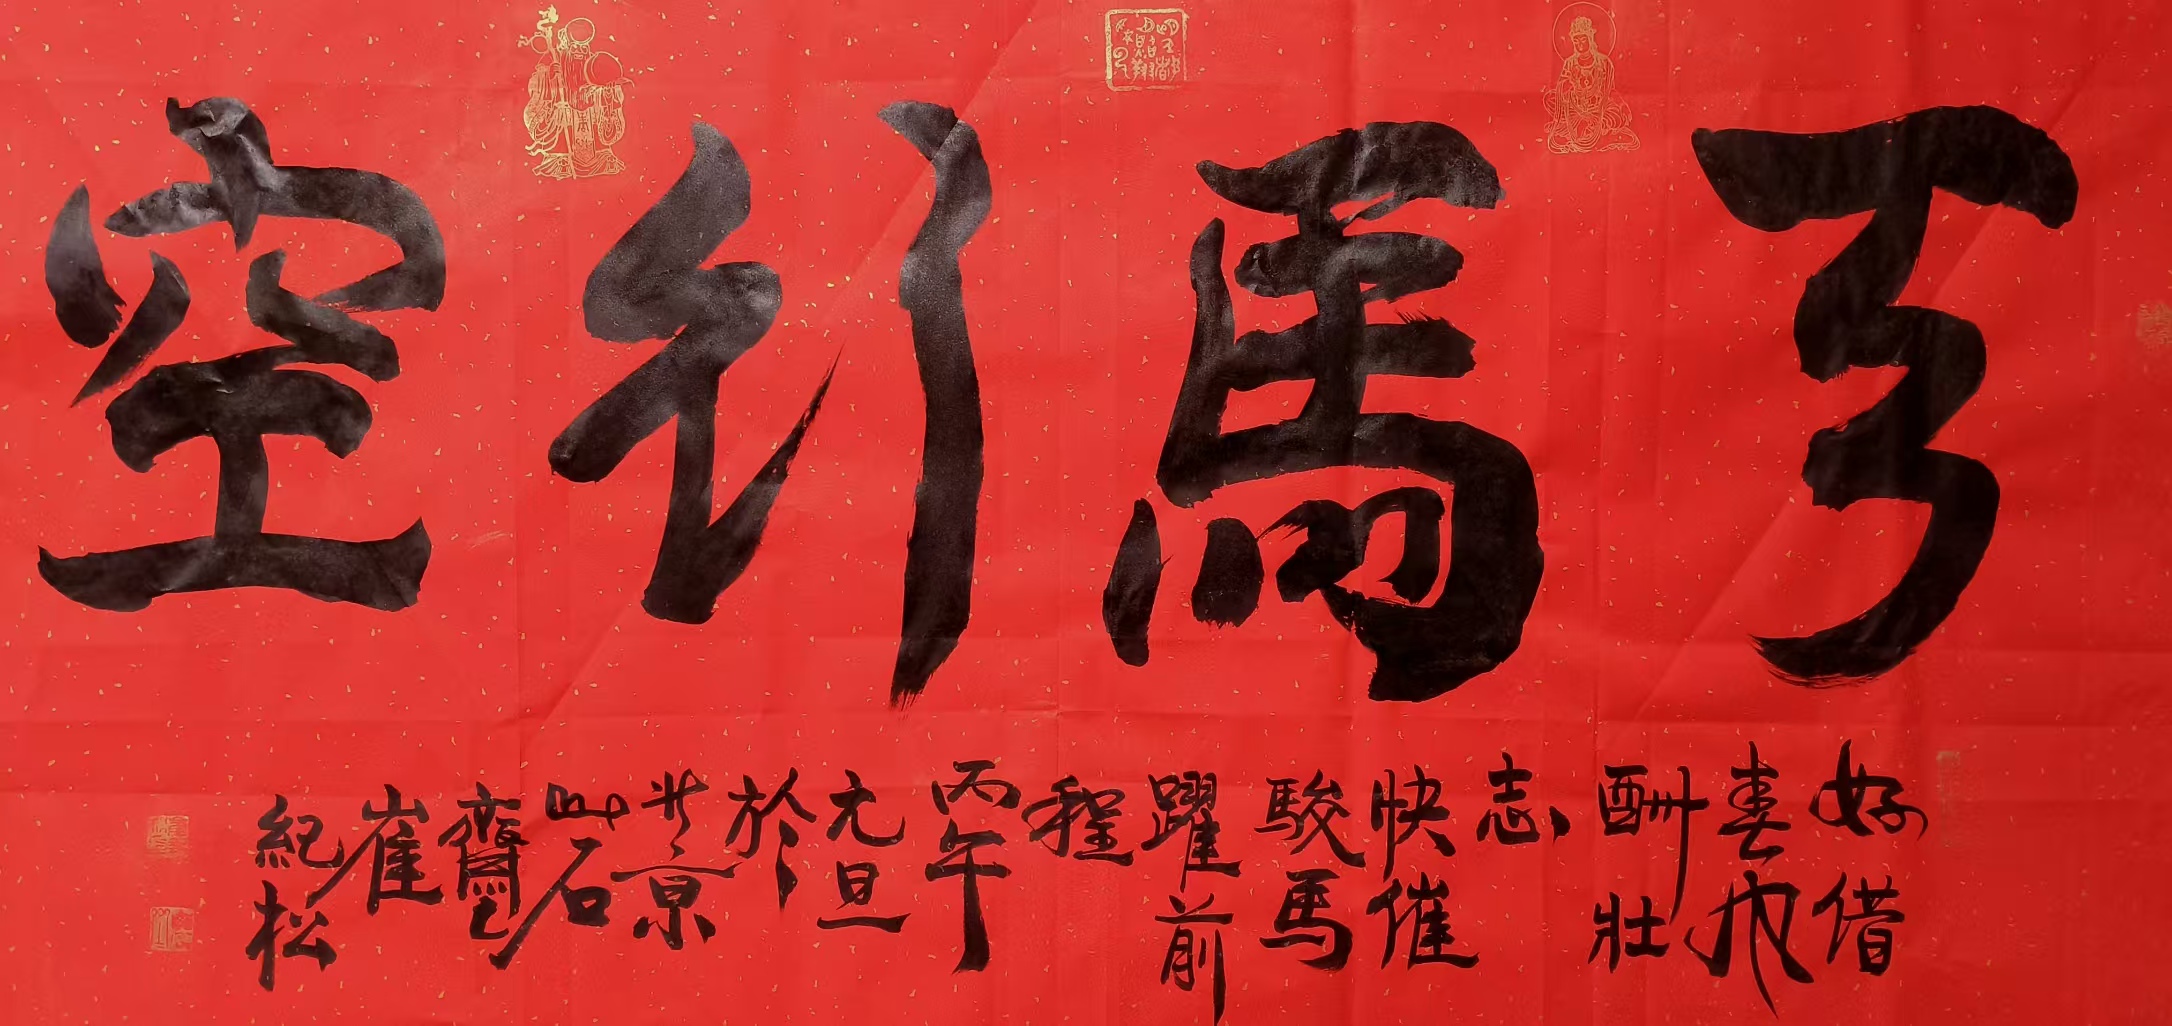 天馬行空
好借
春風
酬壯
志
快催
駿馬
躍前
程
丙午
元旦
於
北京
石
齋
崔
紀松